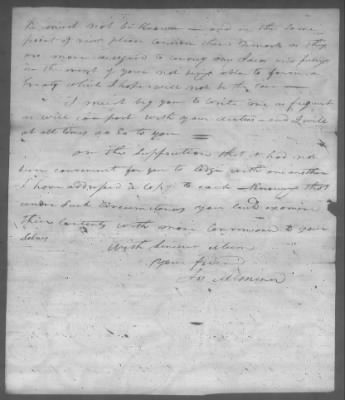 must not be known — and in the same
point of view, please consider these remarks as they
are more designed to convey my ideas and feelings
in the event of your not being able to form a
treaty which I hope will not be the case —
I must beg you to write me as frequent
as will comport with your duties — and I will
at all times do so to you —
on the supposition that it had not
been convenient for you to lodge with one another
I have addressed a copy to each — knowing that
under such circumstances you could examine
their contents with more convenience to your
selves
With sincere esteem
your friend